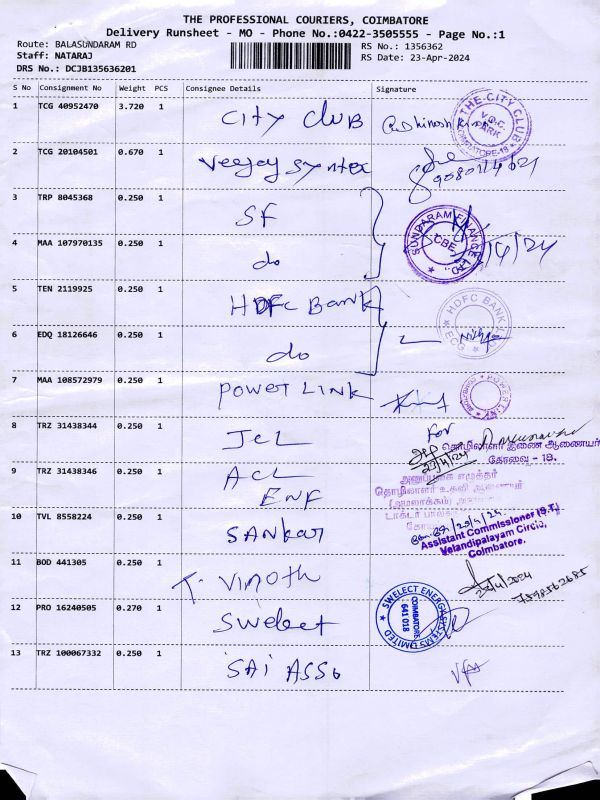 THE PROFESSIONAL COURIERS, COIMBATORE
Delivery Runsheet - MO - Phone No.:0422-3505555 - Page No.:1
Route: BALASUNDARAM RD
Staff: NATARAJ
DRS No.: DCJB135636201
RS No.: 1356362
RS Date: 23-Apr-2024
S No Consignment No Weight PCS Consignee Details Signature
1 TCG 40952470 3.720 1 City Club
THE CITY CLUB V.O.C. PARK COIMBATORE-18
2 TCG 20104501 0.670 1 Veejay Syntex
3 TRP 8045368 0.250 1 SF
SUNDARAM FINANCE LTD., CBE.
4 MAA 107970135 0.250 1 do
5 TEN 2119925 0.250 1 HDFC Bank
HDFC BANK
6 EDQ 18126646 0.250 1 do
7 MAA 108572979 0.250 1 Power Link
POWER LINK
8 TRZ 31438344 0.250 1 JCL
For
தொழிலாளர் இணை ஆணையர்
கோவை - 18.
23/4/24
9 TRZ 31438346 0.250 1 ACL
ENF
தொழிலாளர் உதவி ஆணையர்
(அமலாக்கம்)
10 TVL 8558224 0.250 1 Sankar
Assistant Commissioner (S.T.)
Velandipalayam Circle,
Coimbatore.
11 BOD 441305 0.250 1 T. Vinoth
12 PRO 16240505 0.270 1 Swelect
SWELECT ENERGY SYSTEMS LIMITED COIMBATORE 641 018
13 TRZ 100067332 0.250 1 SAI ASSO